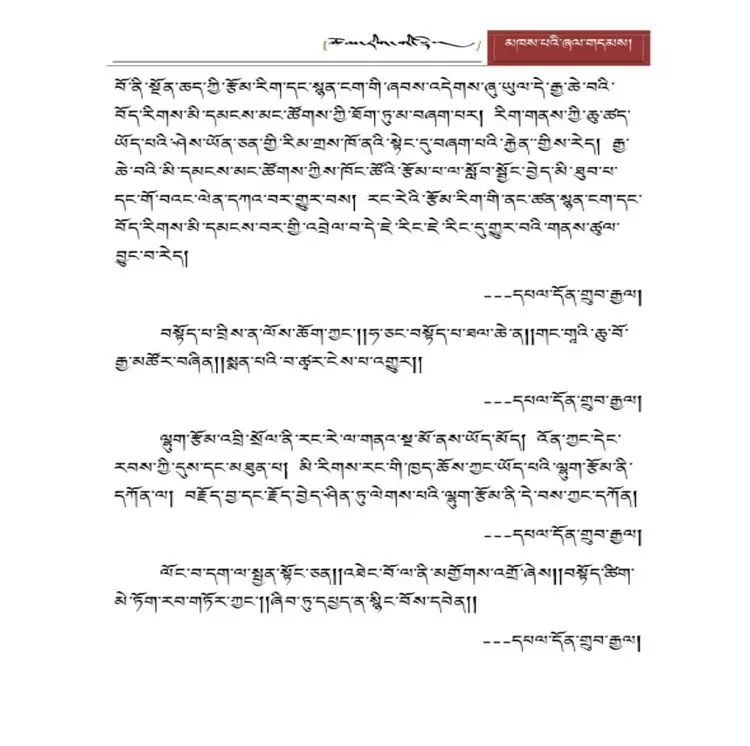 མཁས་པའི་ཞལ་གདམས།
བོ་ནི་སྔོན་ཆད་ཀྱི་རྩོམ་རིག་དང་སྙན་ངག་གི་ཞབས་འདེགས་ཞུ་ཡུལ་དེ་རྒྱ་ཆེ་བའི་
བོད་རིགས་མི་དམངས་མང་ཚོགས་ཀྱི་ཐོག་ཏུ་མ་བཞག་པར། རིག་གནས་ཀྱི་ཆུ་ཚད་
ཡོད་པའི་ཤེས་ཡོན་ཅན་གྱི་རིམ་གྲས་ཁོ་ནའི་སྟེང་དུ་བཞག་པའི་རྐྱེན་གྱིས་རེད། རྒྱ་
ཆེ་བའི་མི་དམངས་མང་ཚོགས་ཀྱིས་ཁོང་ཚོའི་རྩོམ་པ་ལ་སློབ་སྦྱོང་བྱེད་མི་ཐུབ་པ་
དང་གོ་བའང་ལེན་དཀའ་བར་གྱུར་བས། རང་རེའི་རྩོམ་རིག་གི་ནང་ཚན་སྙན་ངག་དང་
བོད་རིགས་མི་དམངས་བར་གྱི་འབྲེལ་བ་དེ་ཇེ་རིང་ཇེ་རིང་དུ་གྱུར་བའི་གནས་ཚུལ་
བྱུང་བ་རེད།
---དཔལ་དོན་གྲུབ་རྒྱལ།
བསྟོད་པ་བྲིས་ན་ལོས་ཆོག་ཀྱང་།།ཧ་ཅང་བསྟོད་པ་ཐལ་ཆེ་ན།།གང་གཱའི་ཆུ་བོ་
རྒྱ་མཚོར་བཞིན།།སྨན་པའི་བ་ཚྭར་ངེས་པ་འགྱུར།།
---དཔལ་དོན་གྲུབ་རྒྱལ།
ལྷུག་རྩོམ་འབྲི་སྲོལ་ནི་རང་རེ་ལ་གནའ་སྔ་མོ་ནས་ཡོད་མོད། འོན་ཀྱང་དེང་
རབས་ཀྱི་དུས་དང་མཐུན་པ། མི་རིགས་རང་གི་ཁྱད་ཆོས་ཀྱང་ཡོད་པའི་ལྷུག་རྩོམ་ནི་
དཀོན་ལ། བརྗོད་བྱ་དང་རྗོད་བྱེད་ཤིན་ཏུ་ལེགས་པའི་ལྷུག་རྩོམ་ནི་དེ་བས་ཀྱང་དཀོན།
---དཔལ་དོན་གྲུབ་རྒྱལ།
ལོང་བ་དག་ལ་སྤྱན་སྟོང་ཅན།།འཐེང་བོ་ལ་ནི་མགྱོགས་འགྲོ་ཞེས།།བསྟོད་ཚིག་
མེ་ཏོག་རབ་གཏོར་ཀྱང་།།ཞིབ་ཏུ་དཔྱད་ན་སྙིང་བོས་དབེན།།
---དཔལ་དོན་གྲུབ་རྒྱལ།